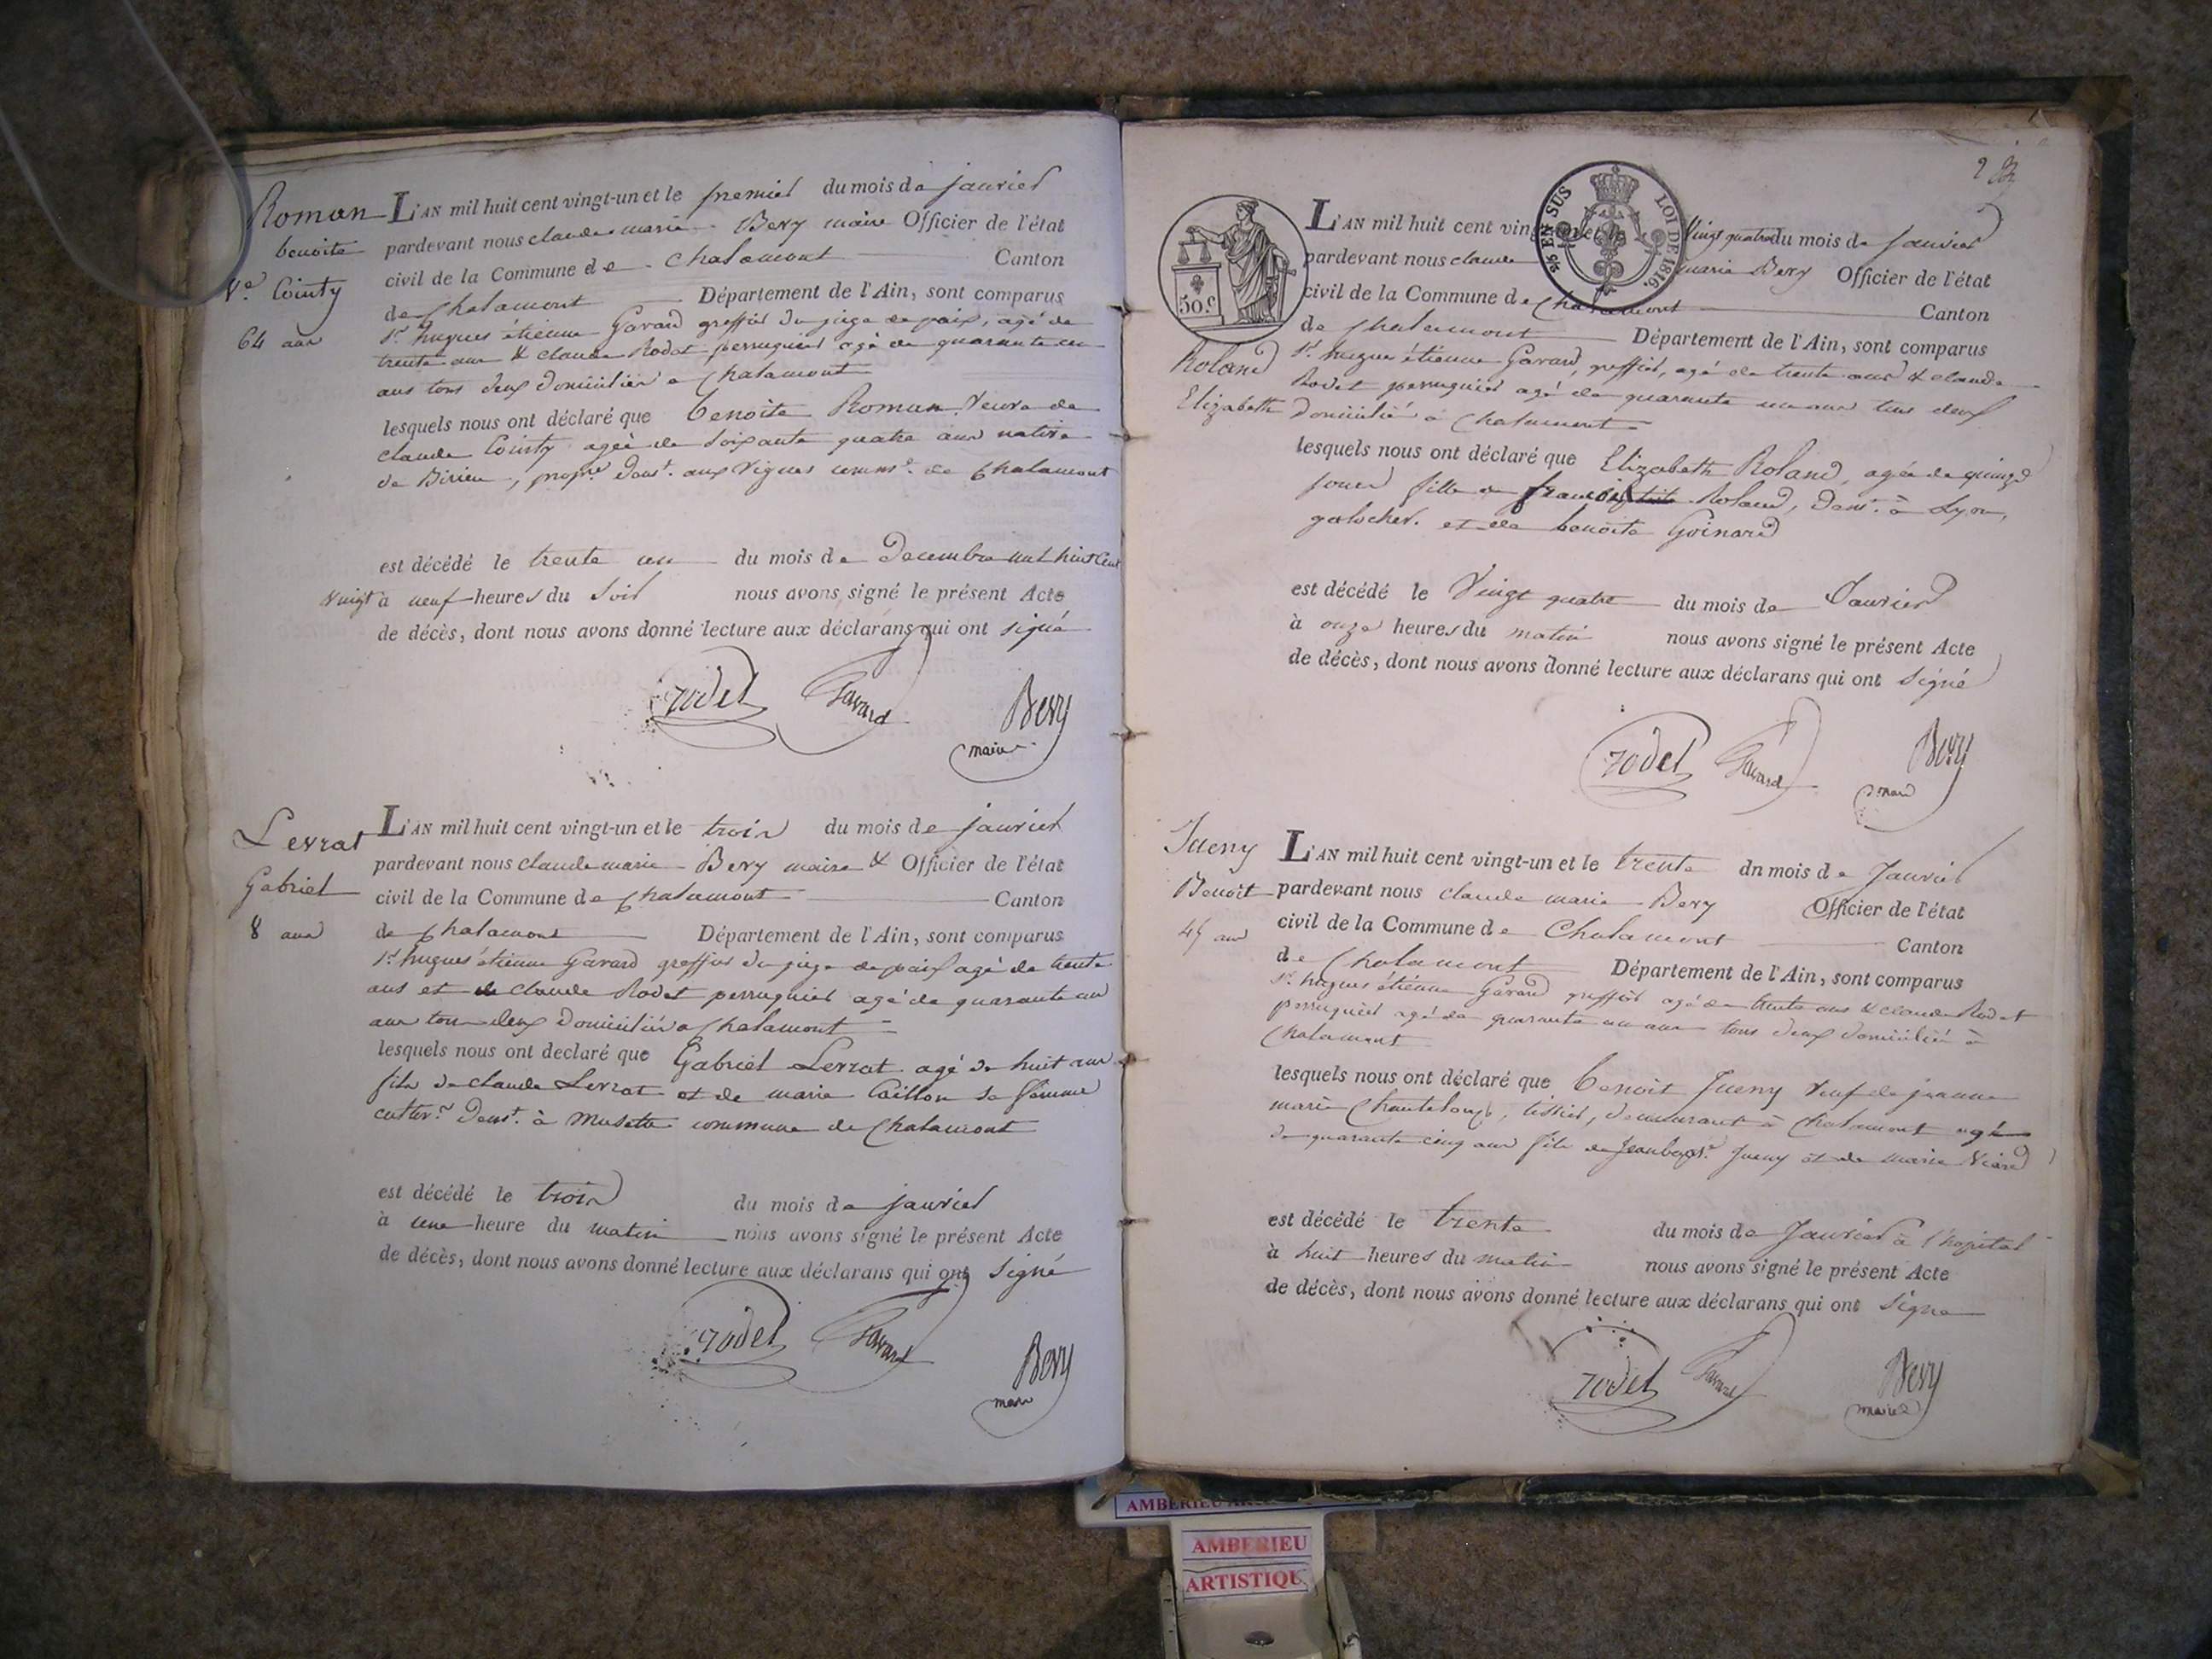 Roman
benoite
Ve. Cointy
64 ans
L'AN mil huit cent vingt-un et le premier du mois de janvier
pardevant nous claude marie Bery maire Officier de l'état
civil de la Commune de Chalamont Canton
de Chalamont Département de l'Ain, sont comparus
Sr. hugues étienne Gavard greffier du juge de paix, agé de
trente ans & claude Rodet perruquier agé de quarante un
ans tous deux domiciliés a Chalamont
lesquels nous ont déclaré que benoite Roman Veuve de
claude Cointy agée de soixante quatre ans native
de Birieu, propre. demt. aux Vignes comme. de Chalamont
est décédé le trente un du mois de Decembre mil huit Cent
vingt à neuf heures du soir nous avons signé le présent Acte
de décès, dont nous avons donné lecture aux déclarans qui ont signé
rodet Gavard Bery
maire
Levrat
Gabriel
8 ans
L'AN mil huit cent vingt-un et le trois du mois de janvier
pardevant nous claude marie Bery maire & Officier de l'état
civil de la Commune de Chalamont Canton
de Chalamont Département de l'Ain, sont comparus
Sr. hugues étienne Gavard greffier du juge de paix agé de trente
ans et claude Rodet perruquier agé de quarante un
ans tous deux domiciliés a Chalamont
lesquels nous ont declaré que Gabriel Levrat agé de huit ans
fils de claude Levrat et de marie Caillon sa femme
cultivr. demt. à Musette commune de Chalamont
est décédé le trois du mois de janvier
à une heure du matin nous avons signé le présent Acte
de décès, dont nous avons donné lecture aux déclarans qui ont signé
rodet Gavard Bery
maire
2
50 c
% EN SUS LOI DE 1816.
L'AN mil huit cent vingt quatre du mois de janvier
pardevant nous claude marie Bery Officier de l'état
civil de la Commune de Chalamont Canton
de Chalamont Département de l'Ain, sont comparus
Roland
Elizabeth
Sr. hugues étienne Gavard, greffier, agé de trente ans & claude
Rodet perruquier agé de quarante un ans tous deux
domiciliés à Chalamont
lesquels nous ont déclaré que Elizabeth Roland, agée de quinze
jours fille de francois Roland, demt. à Lyon,
galocher. et de benoite Goinard
est décédé le Vingt quatre du mois de Janvier
à onze heures du matin nous avons signé le présent Acte
de décès, dont nous avons donné lecture aux déclarans qui ont signé
rodet Gavard Bery
maire
Jueny
Benoit
45 ans
L'AN mil huit cent vingt-un et le trente dn mois de Janvier
pardevant nous claude marie Bery Officier de l'état
civil de la Commune de Chalamont Canton
de Chalamont Département de l'Ain, sont comparus
Sr. hugues étienne Gavard greffier agé de trente ans & claude Rodet
perruquier agé de quarante un ans tous deux domiciliés à
Chalamont
lesquels nous ont déclaré que benoit Jueny Veuf de jeanne
marie Chanteloup, tissier, demeurant à Chalamont agé
de quarante cinq ans fils de Jeanbapt. Jueny et de marie
est décédé le trente du mois de Janvier à l'hopital
à huit heures du matin nous avons signé le présent Acte
de décès, dont nous avons donné lecture aux déclarans qui ont signé
rodet Gavard Bery
maire
AMBERIEU
AMBERIEU
ARTISTIQU